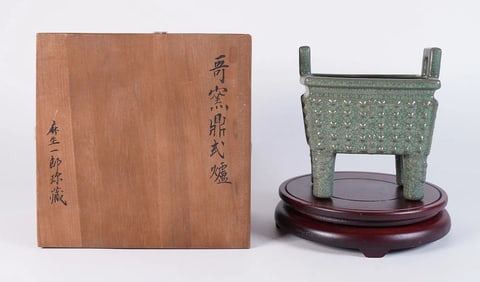 哥窯鼎式爐
麻生一郎珍藏